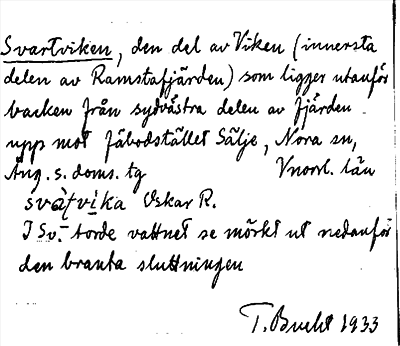 Svartviken, den del av Viken (innersta
delen av Ramstafjärden) som ligger utanför
backen från sydvästra delen av fjärden
upp mot fäbodstället Sälje, Nora sn,
Ång. s. doms. tg Vnorrl. län
svàʈvìka Oskar R.
I Sv.- torde vattnet se mörkt ut nedanför
den branta sluttningen
T. Bucht 1933